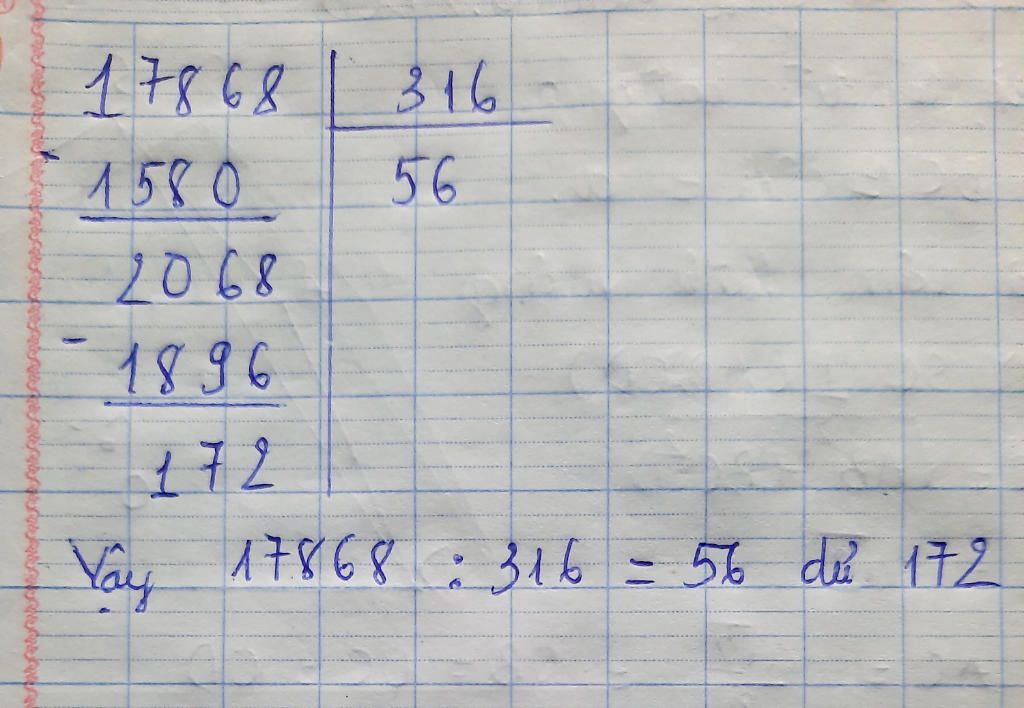 17868 316
- 1580 56
2068
- 1896
172
Vậy 17868 : 316 = 56 dư 172